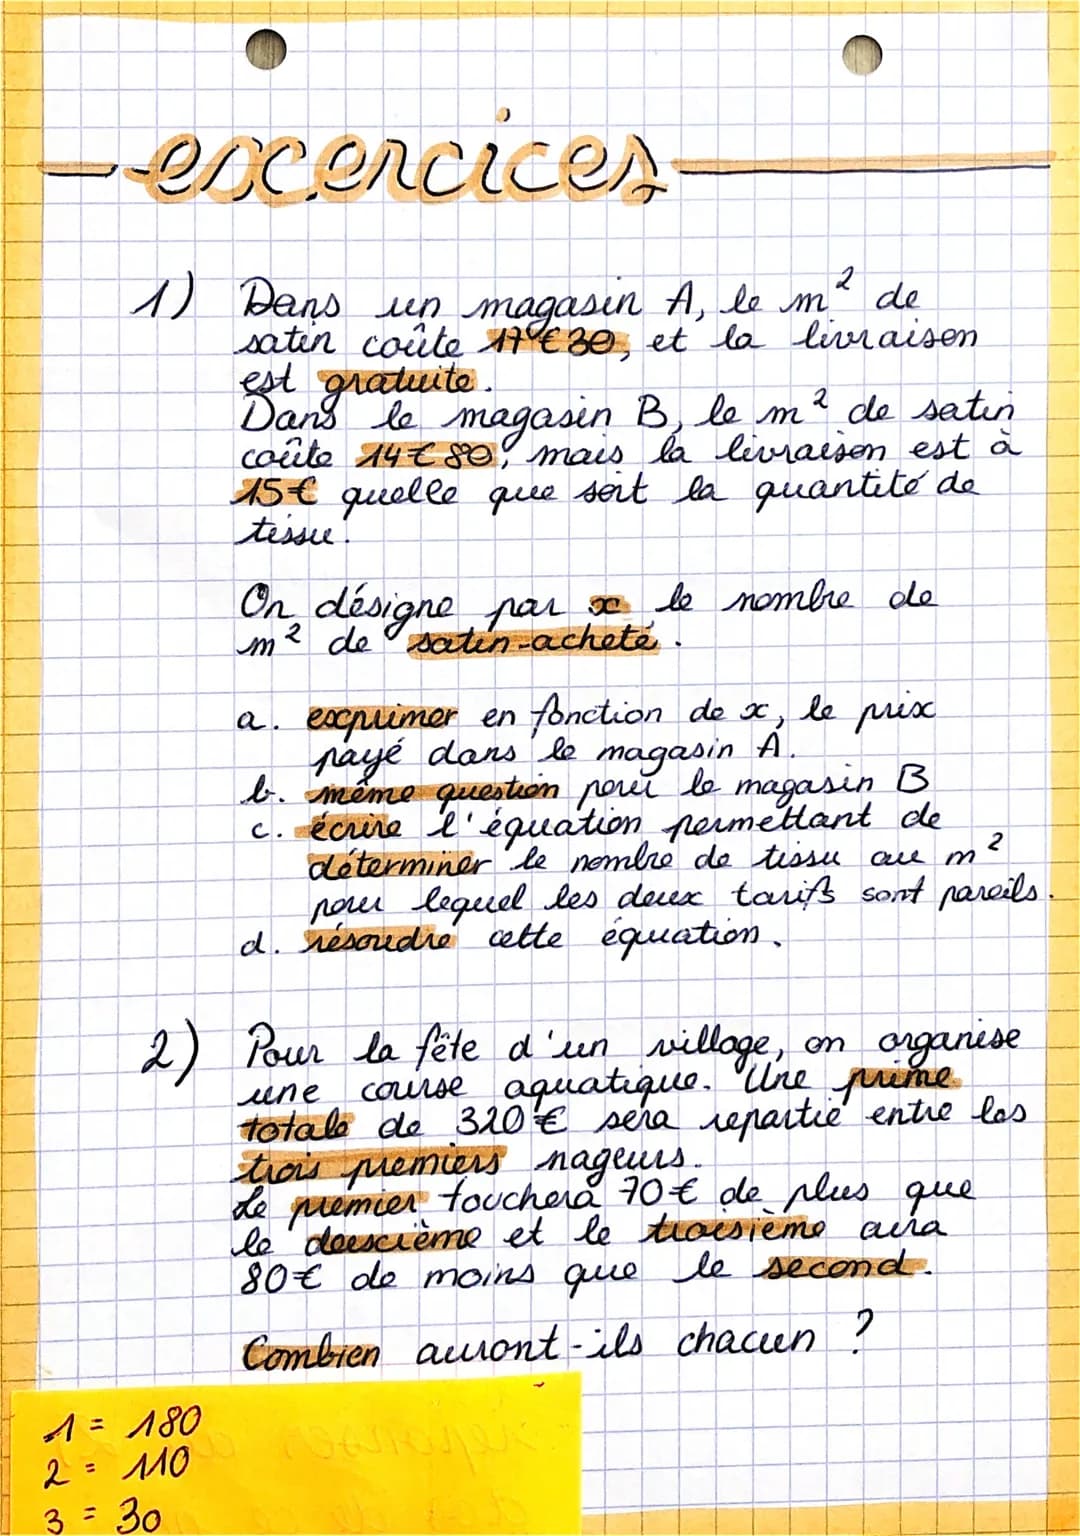 excercices
1) Dans un magasin A, le m² de
satin coûte 17€30, et la livraison
est gratuite.
Dans le magasin B, le m² de satin
coûte 14€80, mais la livraison est à
15€ quelle que soit la quantité de
tissu.
On désigne par x le nombre de
m² de satin acheté.
a. exprimer en fonction de x, le prix
payé dans le magasin A.
b. même question pour le magasin B
c. écrire l'équation permettant de
déterminer le nombre de tissu au m²
pour lequel les deux tarifs sont pareils.
d. résoudre cette équation.
2) Pour la fête d'un village, on organise
une course aquatique. Une prime
totale de 320€ sera repartie entre les
trois premiers nageurs.
Le premier touchera 70€ de plus que
le deuxième et le troisième aura
80€ de moins que le second.
Combien auront-ils chacun ?
1 = 180
2 = 110
3 = 30